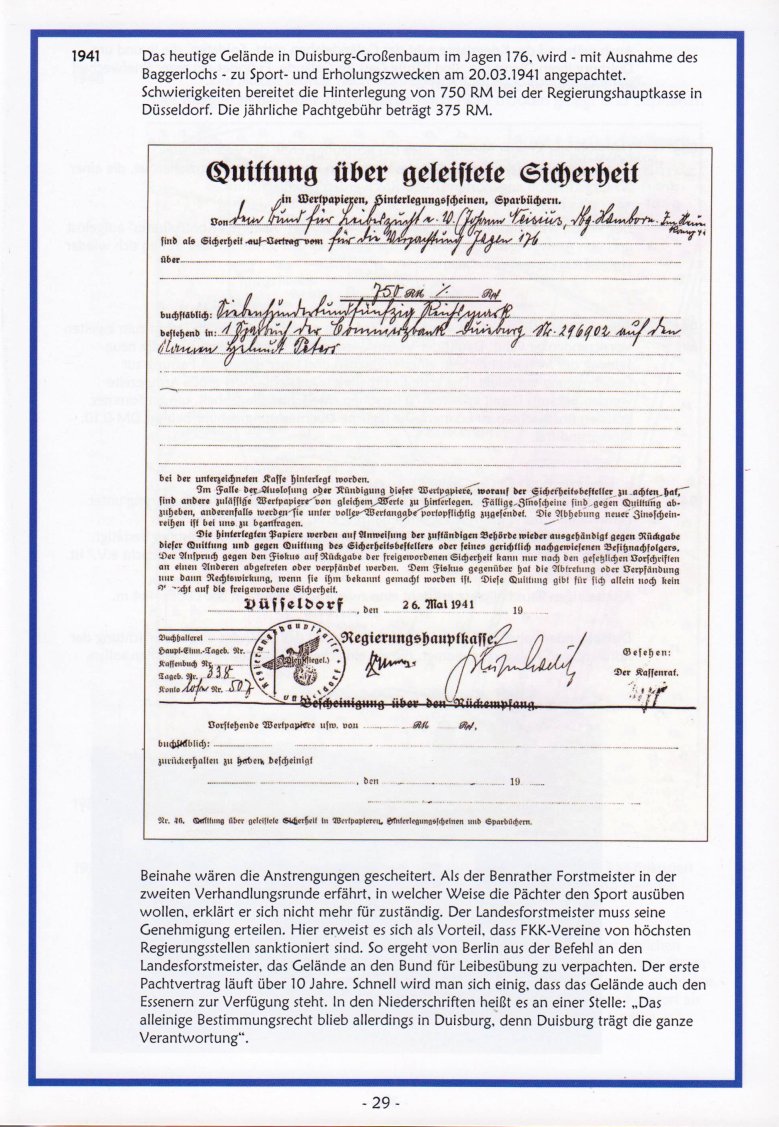 1941 Das heutige Gelände in Duisburg-Großenbaum im Jagen 176, wird - mit Ausnahme des
Baggerlochs - zu Sport- und Erholungszwecken am 20.03.1941 angepachtet.
Schwierigkeiten bereitet die Hinterlegung von 750 RM bei der Regierungshauptkasse in
Düsseldorf. Die jährliche Pachtgebühr beträgt 375 RM.
Quittung über geleistete Sicherheit
in Wertpapieren, Hinterlegungsscheinen, Sparbüchern.
Von dem Bund für Leibeszucht e. V. (Johann Neisius, Dbg. Hamborn. Im
sind als Sicherheit auf Vertrag vom für die Verpachtung Jagen 176
über
750 RM Rpf
buchstäblich: Siebenhundertundfünfzig Reichsmark
bestehend in: 1 Sparbuch der Commerzbank Duisburg Nr. 296902 auf den
Namen Helmut Peters
bei der unterzeichneten Kasse hinterlegt worden.
Im Falle der Auslosung oder Kündigung dieser Wertpapiere, worauf der Sicherheitsbesteller zu achten hat,
sind andere zulässige Wertpapiere von gleichem Werte zu hinterlegen. Fällige Zinsscheine sind gegen Quittung ab-
zuheben, anderenfalls werden sie unter voller Wertangabe portopflichtig zugesendet. Die Abhebung neuer Zinsschein-
reihen ist bei uns zu beantragen.
Die hinterlegten Papiere werden auf Anweisung der zuständigen Behörde wieder ausgehändigt gegen Rückgabe
dieser Quittung und gegen Quittung des Sicherheitsbestellers oder seines gerichtlich nachgewiesenen Besitznachfolgers.
Der Anspruch gegen den Fiskus auf Rückgabe der freigewordenen Sicherheit kann nur nach den gesetzlichen Vorschriften
an einen Anderen abgetreten oder verpfändet werden. Dem Fiskus gegenüber hat die Abtretung oder Verpfändung
nur dann Rechtswirkung, wenn sie ihm bekannt gemacht worden ist. Diese Quittung gibt für sich allein noch kein
auf die freigewordene Sicherheit.
Düsseldorf, den 26. Mai 1941 19
Buchhalterei
Regierungshauptkasse
Haupt-Einn.-Tageb. Nr.
Gesehen:
Kassenbuch Nr.
Tageb. Nr. 338
Der Kassenrat.
Konto Nr. 507
Regierungshauptkasse
(Dienstsiegel.)
Bescheinigung über den Rückempfang.
Vorstehende Wertpapiere usw. von RM Rpf,
buchstäblich:
zurückerhalten zu haben, bescheinigt
, den 19
Nr. 46. Quittung über geleistete Sicherheit in Wertpapieren, Hinterlegungsscheinen und Sparbüchern.
Beinahe wären die Anstrengungen gescheitert. Als der Benrather Forstmeister in der
zweiten Verhandlungsrunde erfährt, in welcher Weise die Pächter den Sport ausüben
wollen, erklärt er sich nicht mehr für zuständig. Der Landesforstmeister muss seine
Genehmigung erteilen. Hier erweist es sich als Vorteil, dass FKK-Vereine von höchsten
Regierungsstellen sanktioniert sind. So ergeht von Berlin aus der Befehl an den
Landesforstmeister, das Gelände an den Bund für Leibesübung zu verpachten. Der erste
Pachtvertrag läuft über 10 Jahre. Schnell wird man sich einig, dass das Gelände auch den
Essenern zur Verfügung steht. In den Niederschriften heißt es an einer Stelle: „Das
alleinige Bestimmungsrecht blieb allerdings in Duisburg, denn Duisburg trägt die ganze
Verantwortung“.
- 29 -